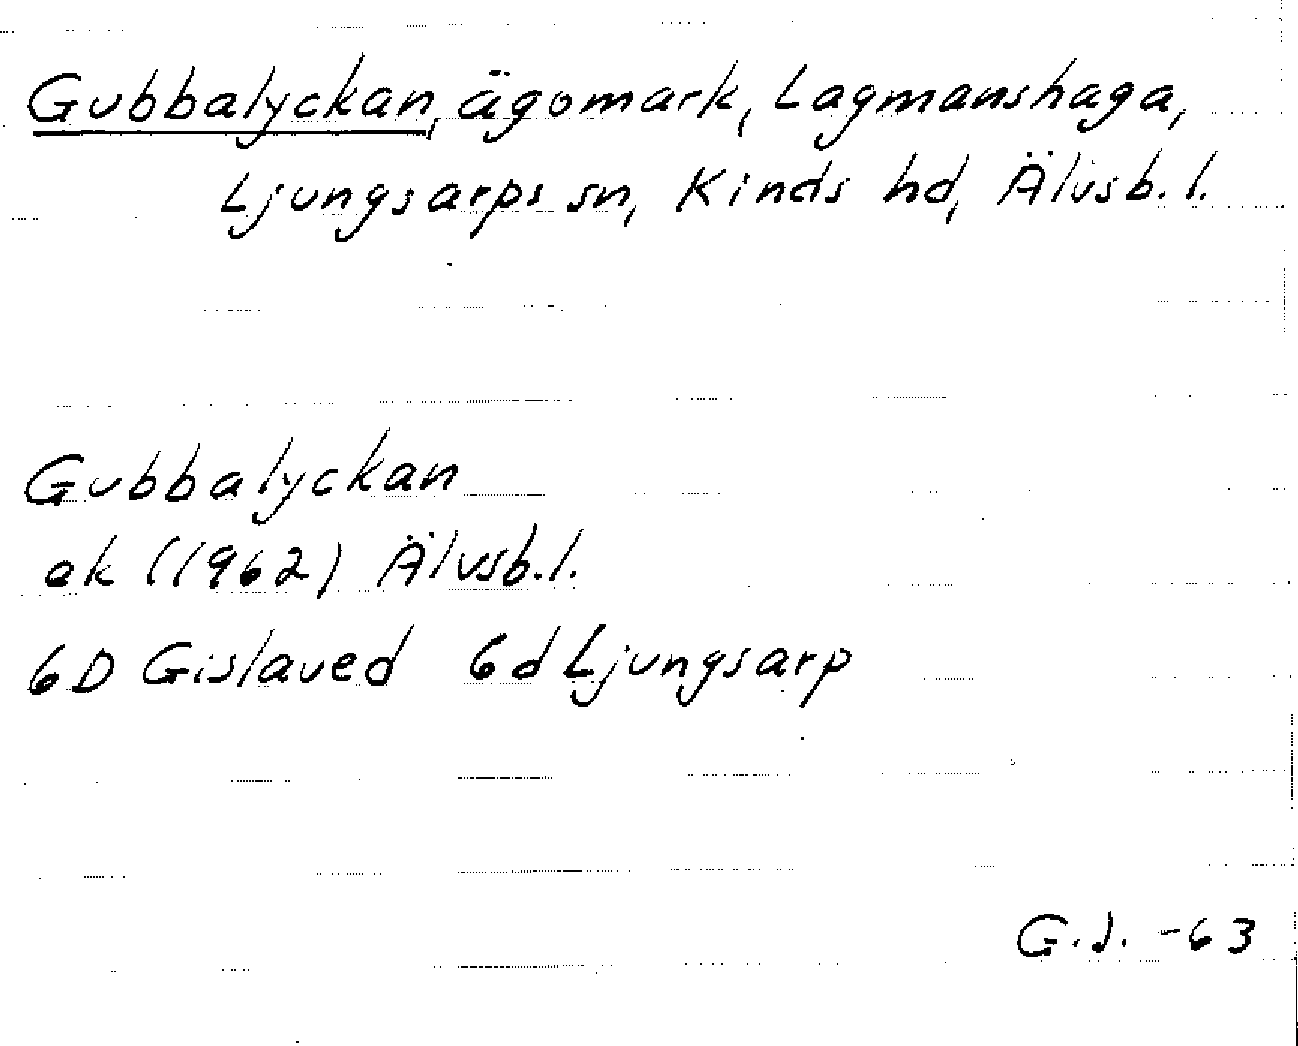 Gubbalyckan, ägomark, Lagmanshaga,
Ljungsarps sn, Kinds hd, Älvsb. l.
Gubbalyckan
ek (1962) Älvsb.l.
6D Gislaved 6d Ljungsarp
G.J. -63